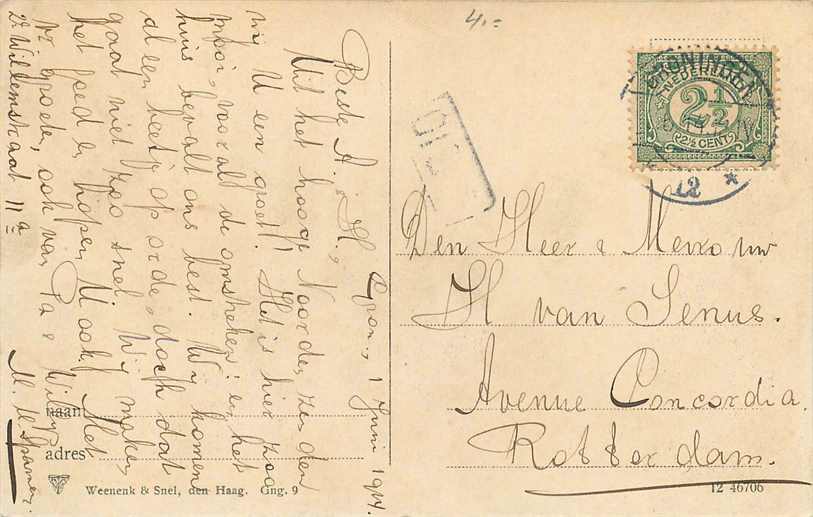 4.=
GRONINGEN
NEDERLAND
2½
2½ CENT
12 *
Den Heer & Mevrouw
H van Senus.
Avenue Concordia
Rotterdam.
Gron., 1 Juni 1914.
Beste A. & H.,
Uit het hooge Noorden zenden
wij U een groet! Het is hier zoo
mooi, vooral de omstreken en het
huis bevalt ons best. Wij komen
al een beetje op orde, doch dat
gaat niet zoo snel. Wij maken
het goed en hopen U ook. Met
vr. groeten, ook van Pa & Willy
2e Willemstraat 11a
naam
adres
Weenenk & Snel, den Haag. Gng. 9
12 46706